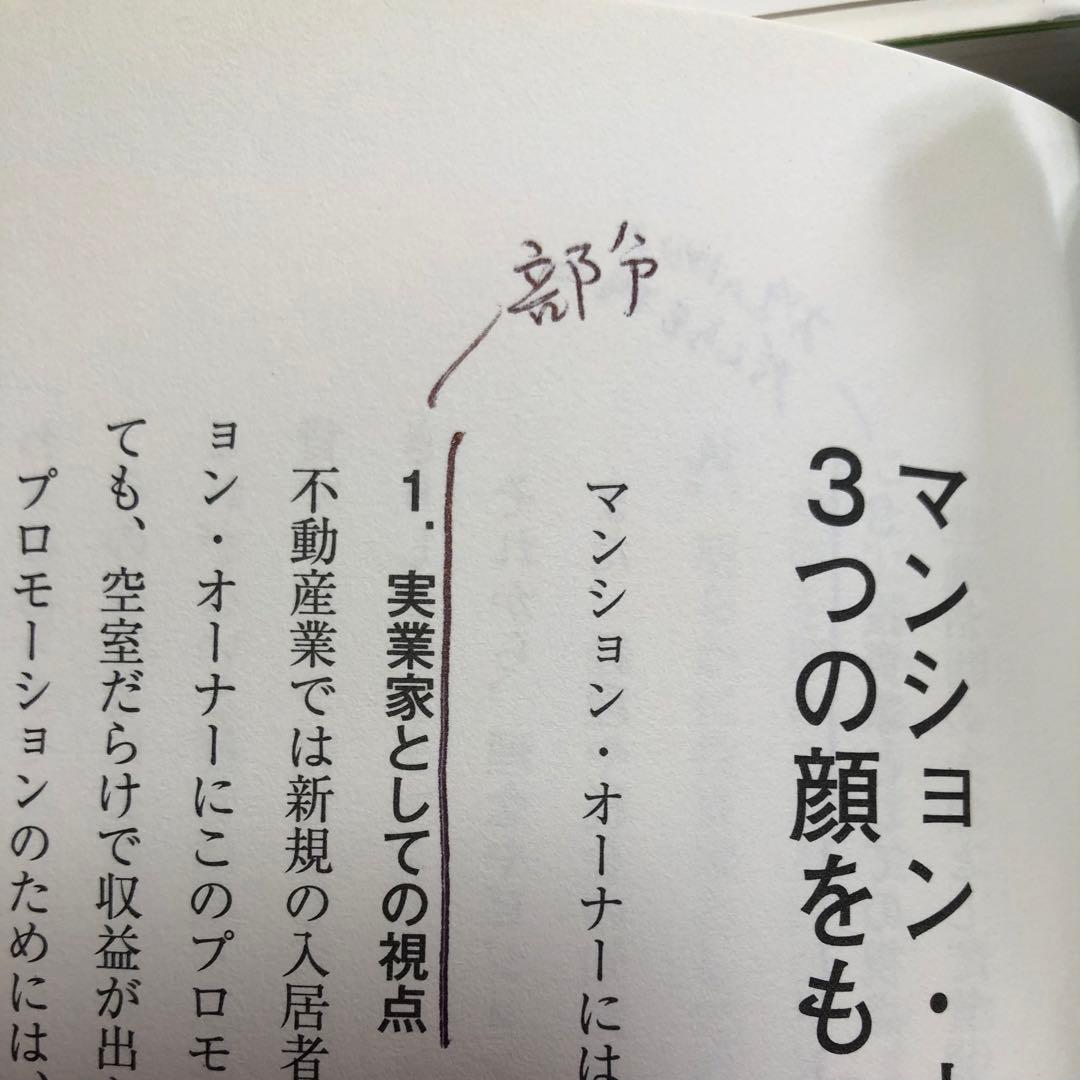 マンション・
3つの顔をも
マンション・オーナーには
部分
1. 実業家としての視点
不動産業では新規の入居者
ョン・オーナーにこのプロモ
ても、空室だらけで収益が出
プロモーションのためには、